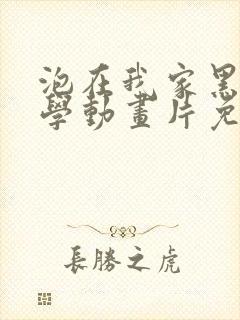 泡在我家黑
學動畫片免
長勝之虎